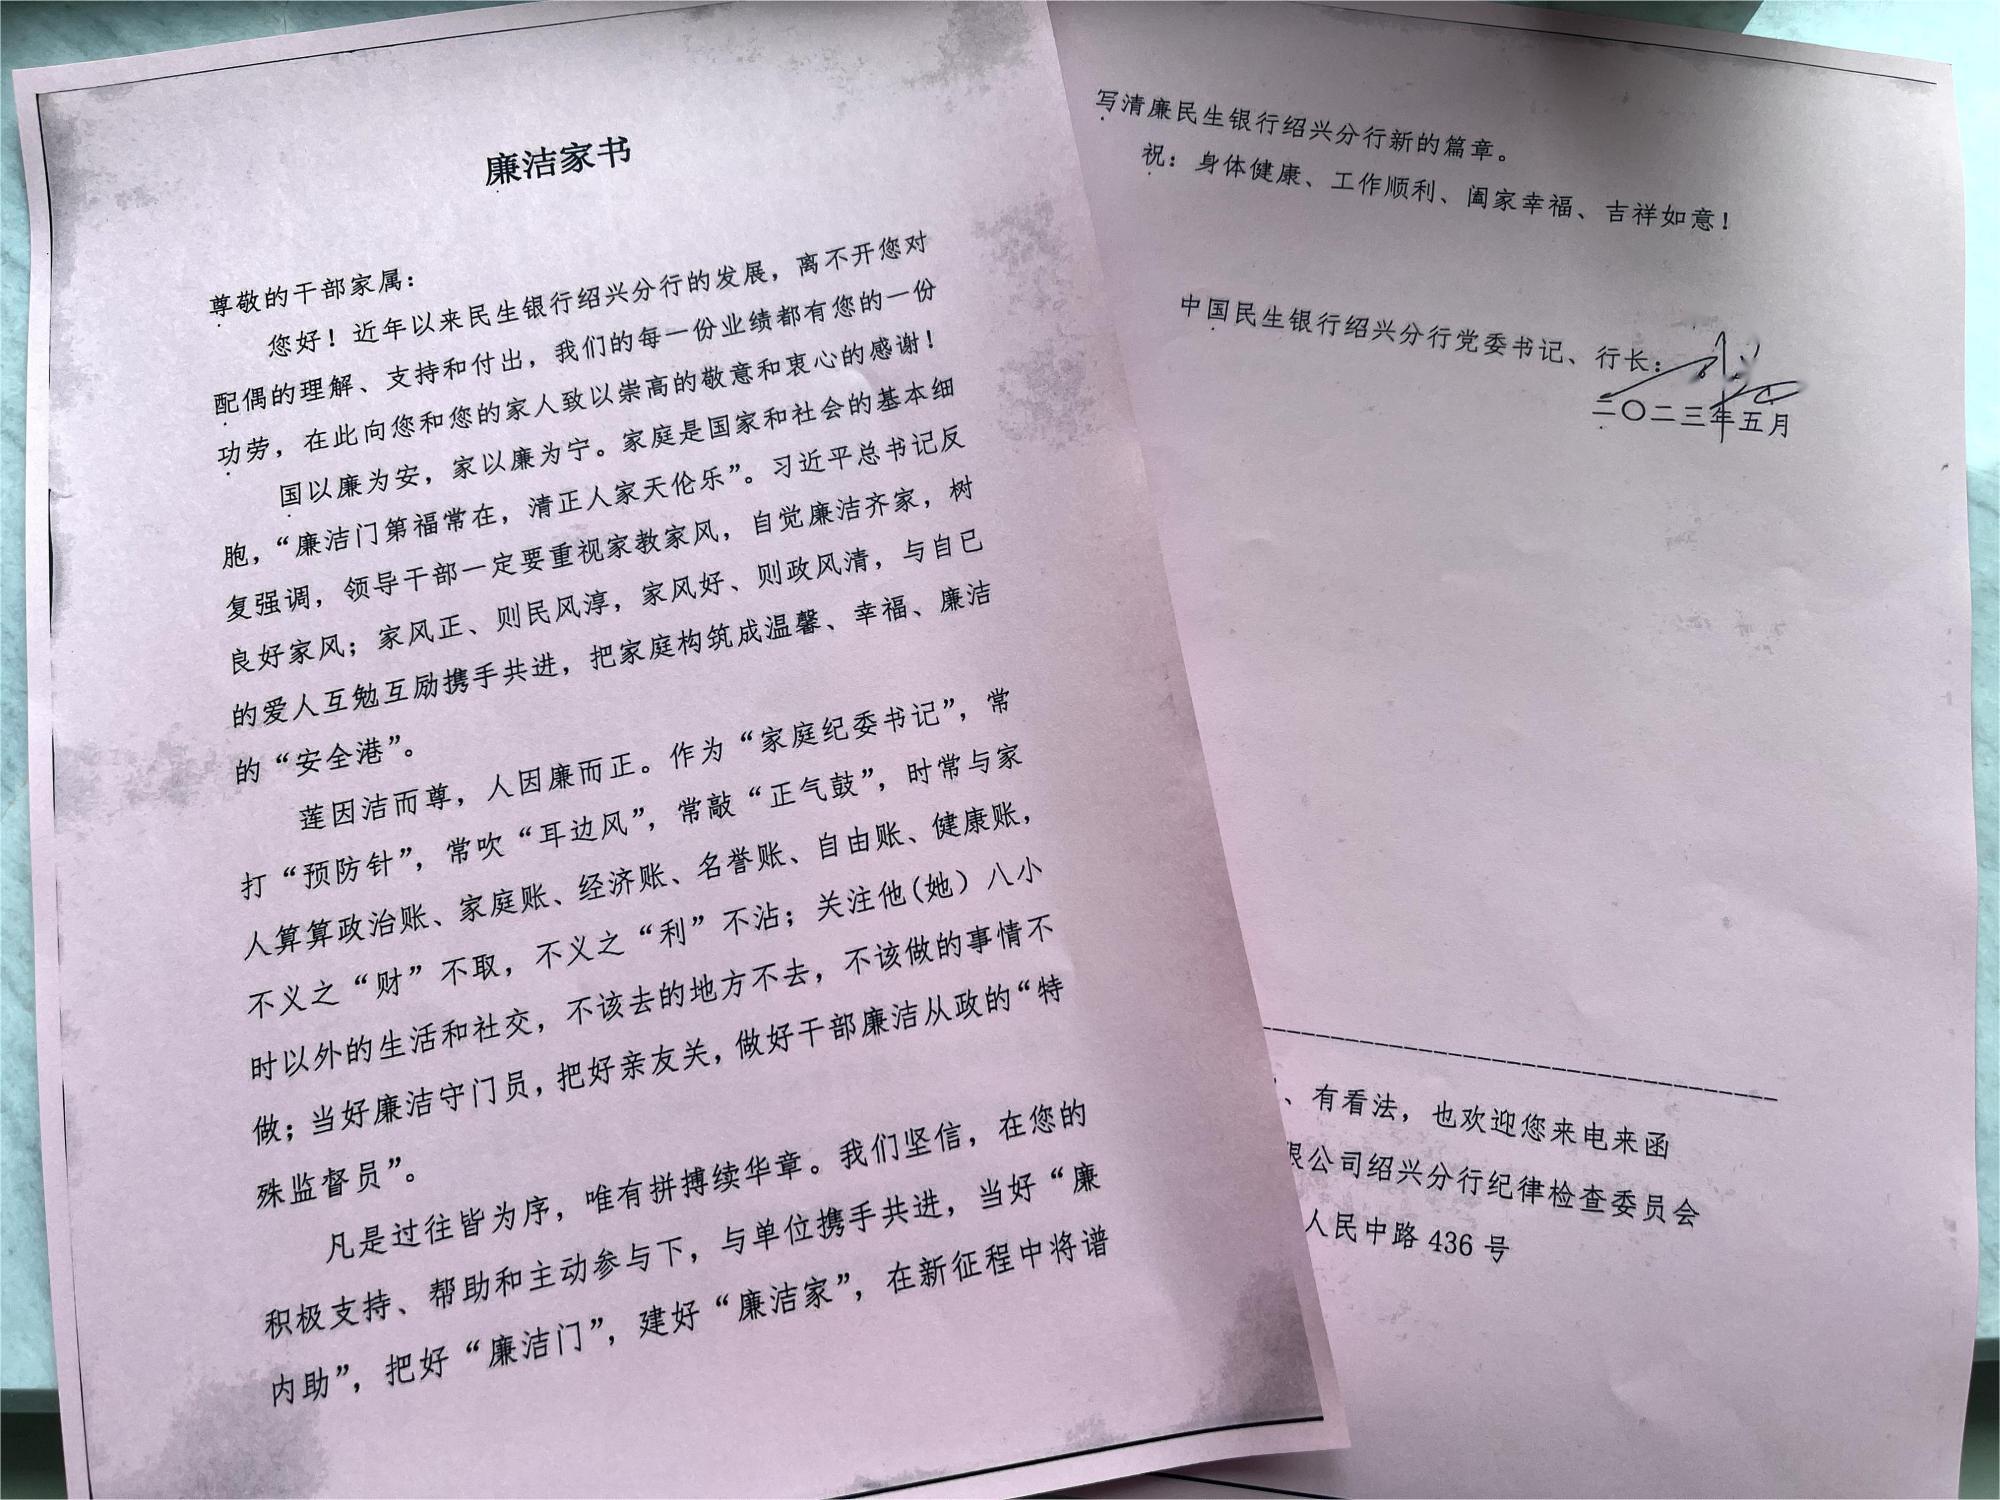 廉洁家书
尊敬的干部家属：
您好！近年以来民生银行绍兴分行的发展，离不开您对
配偶的理解、支持和付出，我们的每一份业绩都有您的一份
功劳，在此向您和您的家人致以崇高的敬意和衷心的感谢！
国以廉为安，家以廉为宁。家庭是国家和社会的基本细
胞，“廉洁门第福常在，清正人家天伦乐”。习近平总书记反
复强调，领导干部一定要重视家教家风，自觉廉洁齐家，树
良好家风；家风正、则民风淳，家风好、则政风清，与自已
的爱人互勉互励携手共进，把家庭构筑成温馨、幸福、廉洁
的“安全港”。
莲因洁而尊，人因廉而正。作为“家庭纪委书记”，常
打“预防针”，常吹“耳边风”，常敲“正气鼓”，时常与家
人算算政治账、家庭账、经济账、名誉账、自由账、健康账，
不义之“财”不取，不义之“利”不沾；关注他(她）八小
时以外的生活和社交，不该去的地方不去，不该做的事情不
做；当好廉洁守门员，把好亲友关，做好干部廉洁从政的“特
殊监督员”。
凡是过往皆为序，唯有拼搏续华章。我们坚信，在您的
积极支持、帮助和主动参与下，与单位携手共进，当好“廉
内助”，把好“廉洁门”，建好“廉洁家”，在新征程中将谱
写清廉民生银行绍兴分行新的篇章。
祝：身体健康、工作顺利、阖家幸福、吉祥如意！
中国民生银行绍兴分行党委书记、行长：
二〇二三年五月
、有看法，也欢迎您来电来函
限公司绍兴分行纪律检查委员会
人民中路 436 号